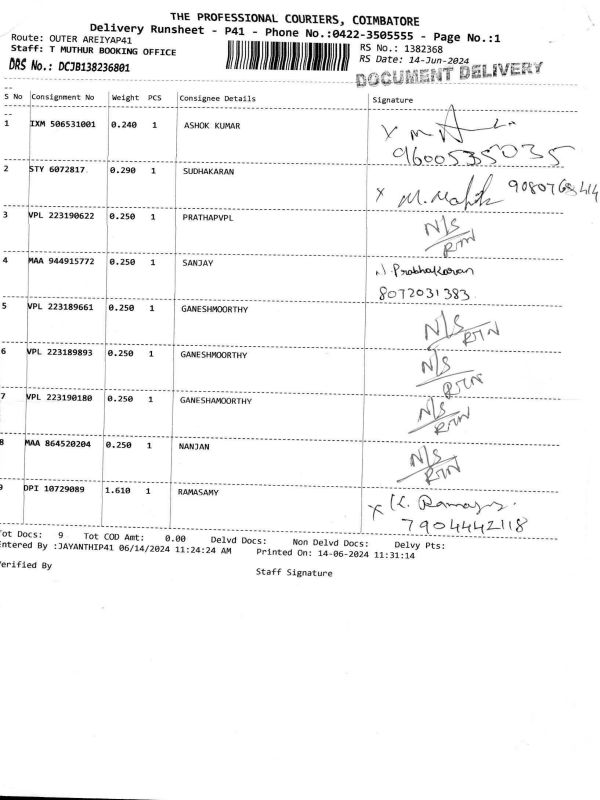 THE PROFESSIONAL COURIERS, COIMBATORE
Delivery Runsheet - P41 - Phone No.:0422-3505555 - Page No.:1
Route: OUTER AREIYAP41 RS No.: 1382368
Staff: T MUTHUR BOOKING OFFICE RS Date: 14-Jun-2024
DRS No.: DCJB138236801 DOCUMENT DELIVERY
S No Consignment No Weight PCS Consignee Details Signature
1 IXM 506531001 0.240 1 ASHOK KUMAR
9600535035
2 STY 6072817 0.290 1 SUDHAKARAN
3 VPL 223190622 0.250 1 PRATHAPVPL N/S
RTN
4 MAA 944915772 0.250 1 SANJAY N. Prabhakaran
8072031383
5 VPL 223189661 0.250 1 GANESHMOORTHY N/S
RTN
6 VPL 223189893 0.250 1 GANESHMOORTHY N/S
RTN
7 VPL 223190180 0.250 1 GANESHAMOORTHY N/S
RTN
8 MAA 864520204 0.250 1 NANJAN N/S
RTN
DPI 10729089 1.610 1 RAMASAMY X K.
7904442118
ot Docs: 9 Tot COD Amt: 0.00 Delvd Docs: Non Delvd Docs: Delvy Pts:
ntered By :JAYANTHIP41 06/14/2024 11:24:24 AM Printed On: 14-06-2024 11:31:14
erified By Staff Signature